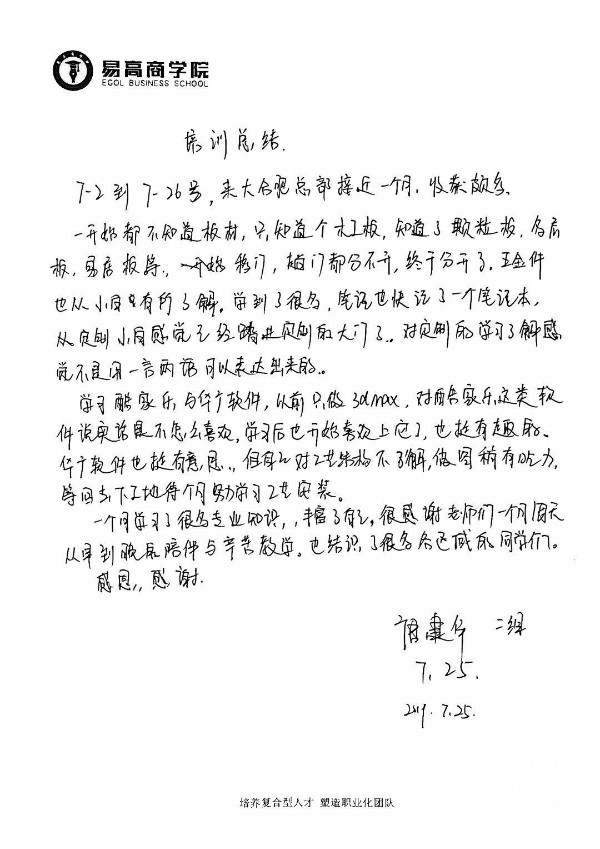 易高商学院
EGOL BUSINESS SCHOOL
培训总结.
7-2到7-26号,来大合肥总部接近一个月.收获颇多.
一开始都不知道板材,只知道个木工板,知道了颗粒板,多层
板,易居板等.,一开始移门,趟门都分不开,终于分开了.五金件
也从小白有所了解。学到了很多,笔记也快记了一个笔记本,
从定制小白感觉已经踏进定制的大门了..对定制的学习了解感
觉不是用一言两语可以表达出来的..
学习酷家乐与华广软件,以前只做3dmax,对酷家乐这类软
件说实话是不怎么喜欢,学习后也开始喜欢上它了,也挺有趣的.
华广软件也挺有意思..但自己对工艺结构不了解,做图稍有吃力,
等回去下工地待个月努学习工艺安装。
一个月学习了很多专业知识,,丰富了自己.很感谢老师们一个月周天
从早到晚的陪伴与辛苦教学.也结识了很多各区域的同学们。
感恩,,感谢.
二组
7.25.
2019.7.25.
培养复合型人才 塑造职业化团队